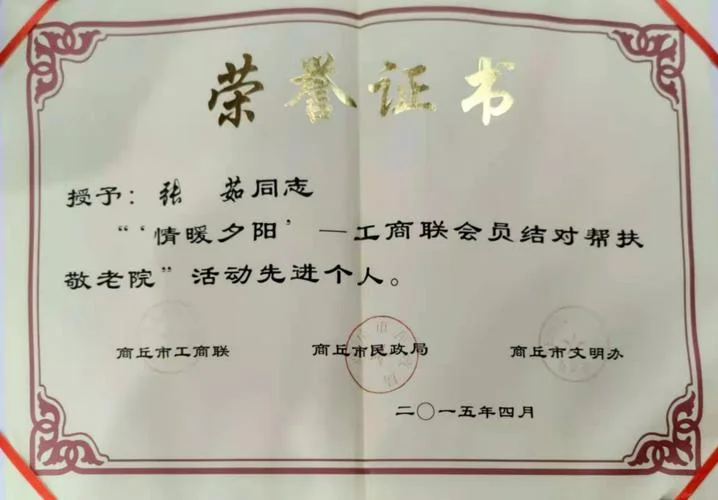 荣誉证书
授予：张 茹同志
“‘情暖夕阳’—工商联会员结对帮扶
敬老院”活动先进个人。
商丘市工商联 商丘市民政局 商丘市文明办
二〇一五年四月